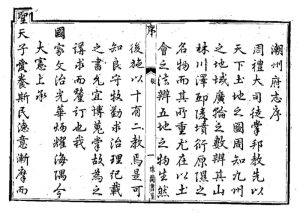 潮州府志序
周禮大司徒掌邦教先以
天下土地之圖周知九州
之地域廣輪之數辨其山
林川澤邱陵墳衍原隰之
名物而其所重尤在以土
會之法辨五地之物生然
後施以十有二教焉是可
知良守牧勤求治理紀載
之書先宜博覽嘗故為之
謀求而釐訂也我
國家文治光華炳耀海隅今
大憲上承
聖天子愛養斯民漸意漸摩而
序